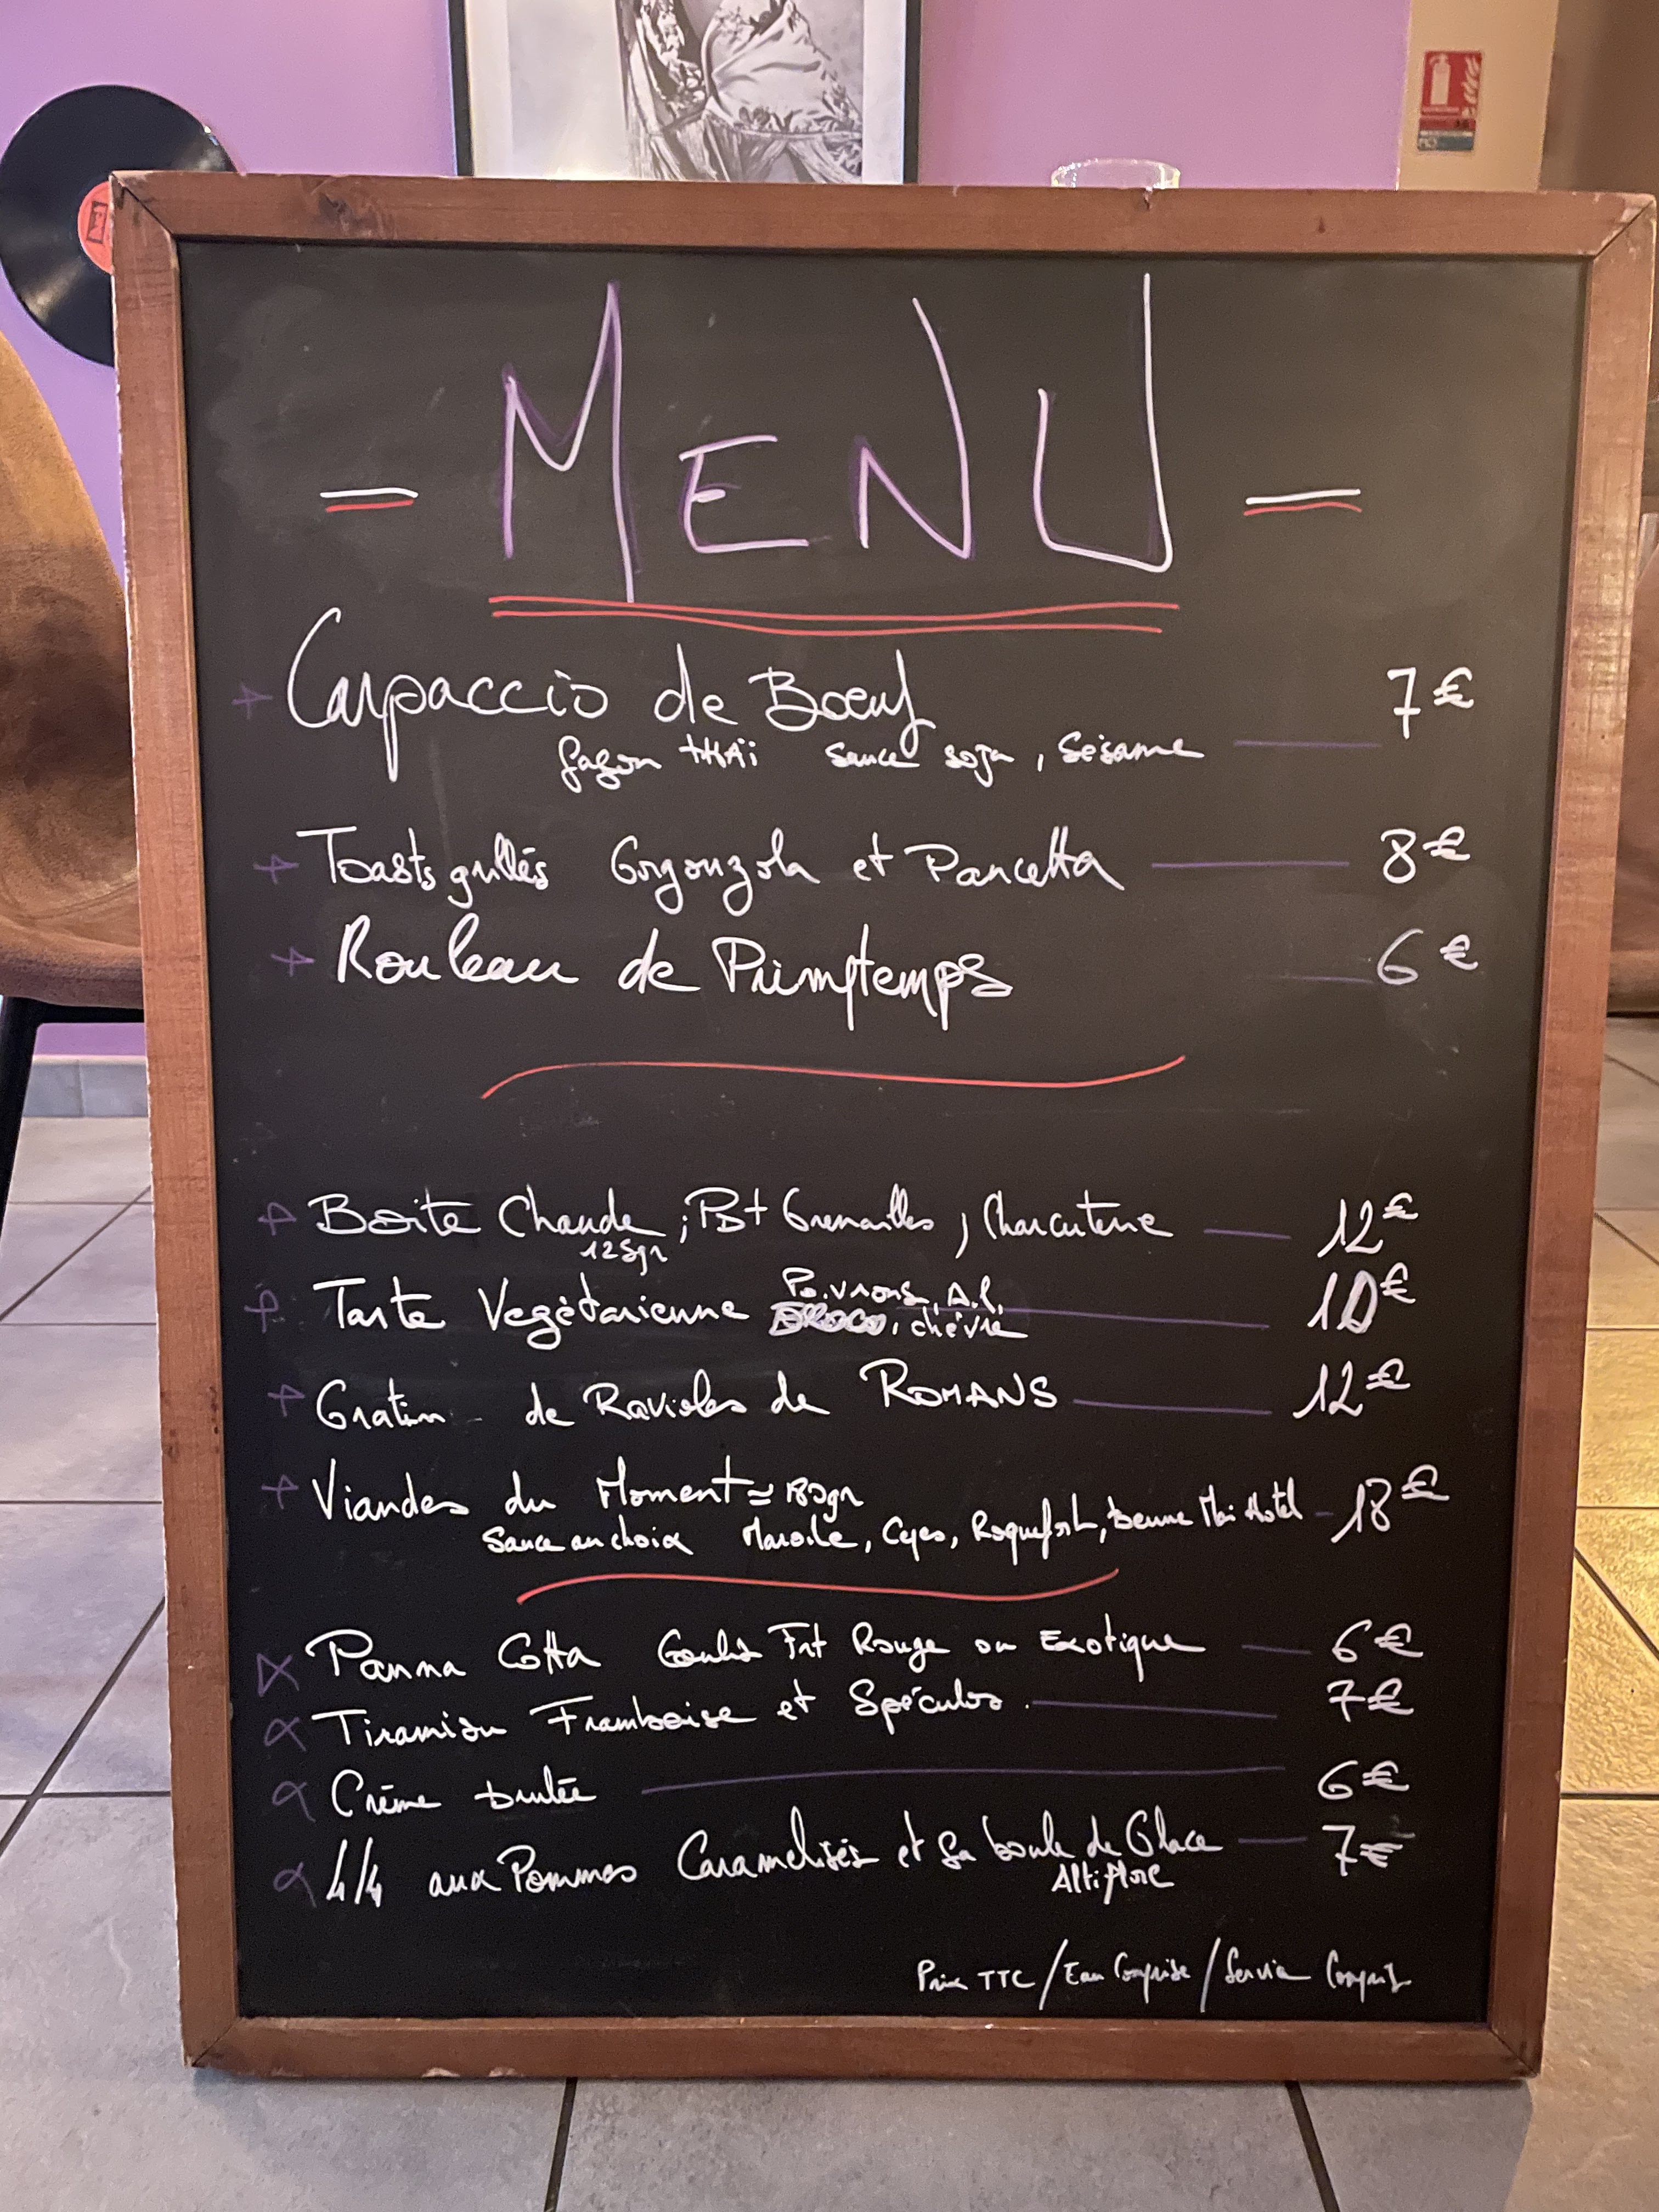 MENU
Carpaccio de Boeuf 7€
façon THAï sauce soja, Sésame
Toasts grillés Gorgonzola et Pancetta 8€
Rouleau de Primptemps 6€
Boite Chaude ; Pdt Grenailles , Charcuterie 12€
125gr
Poivrons, Ail,
Tarte Vegétarienne , chèvre 10€
Gratin de Ravioles de ROMANS 12€
Viandes du Moment ≃ 180gr
Sauce au choix Maroile, Cepes, Roquefort, beurre Mai Hotel 18€
Panna Cotta Coulis Frt Rouge ou Exotique 6€
Tiramisu Framboise et Spéculos 7€
Crème brulée 6€
4/4 aux Pommes Caramelisés et sa boule de Glace 7€
Altiflore
Prix TTC / Eau Comprise / Service Compris